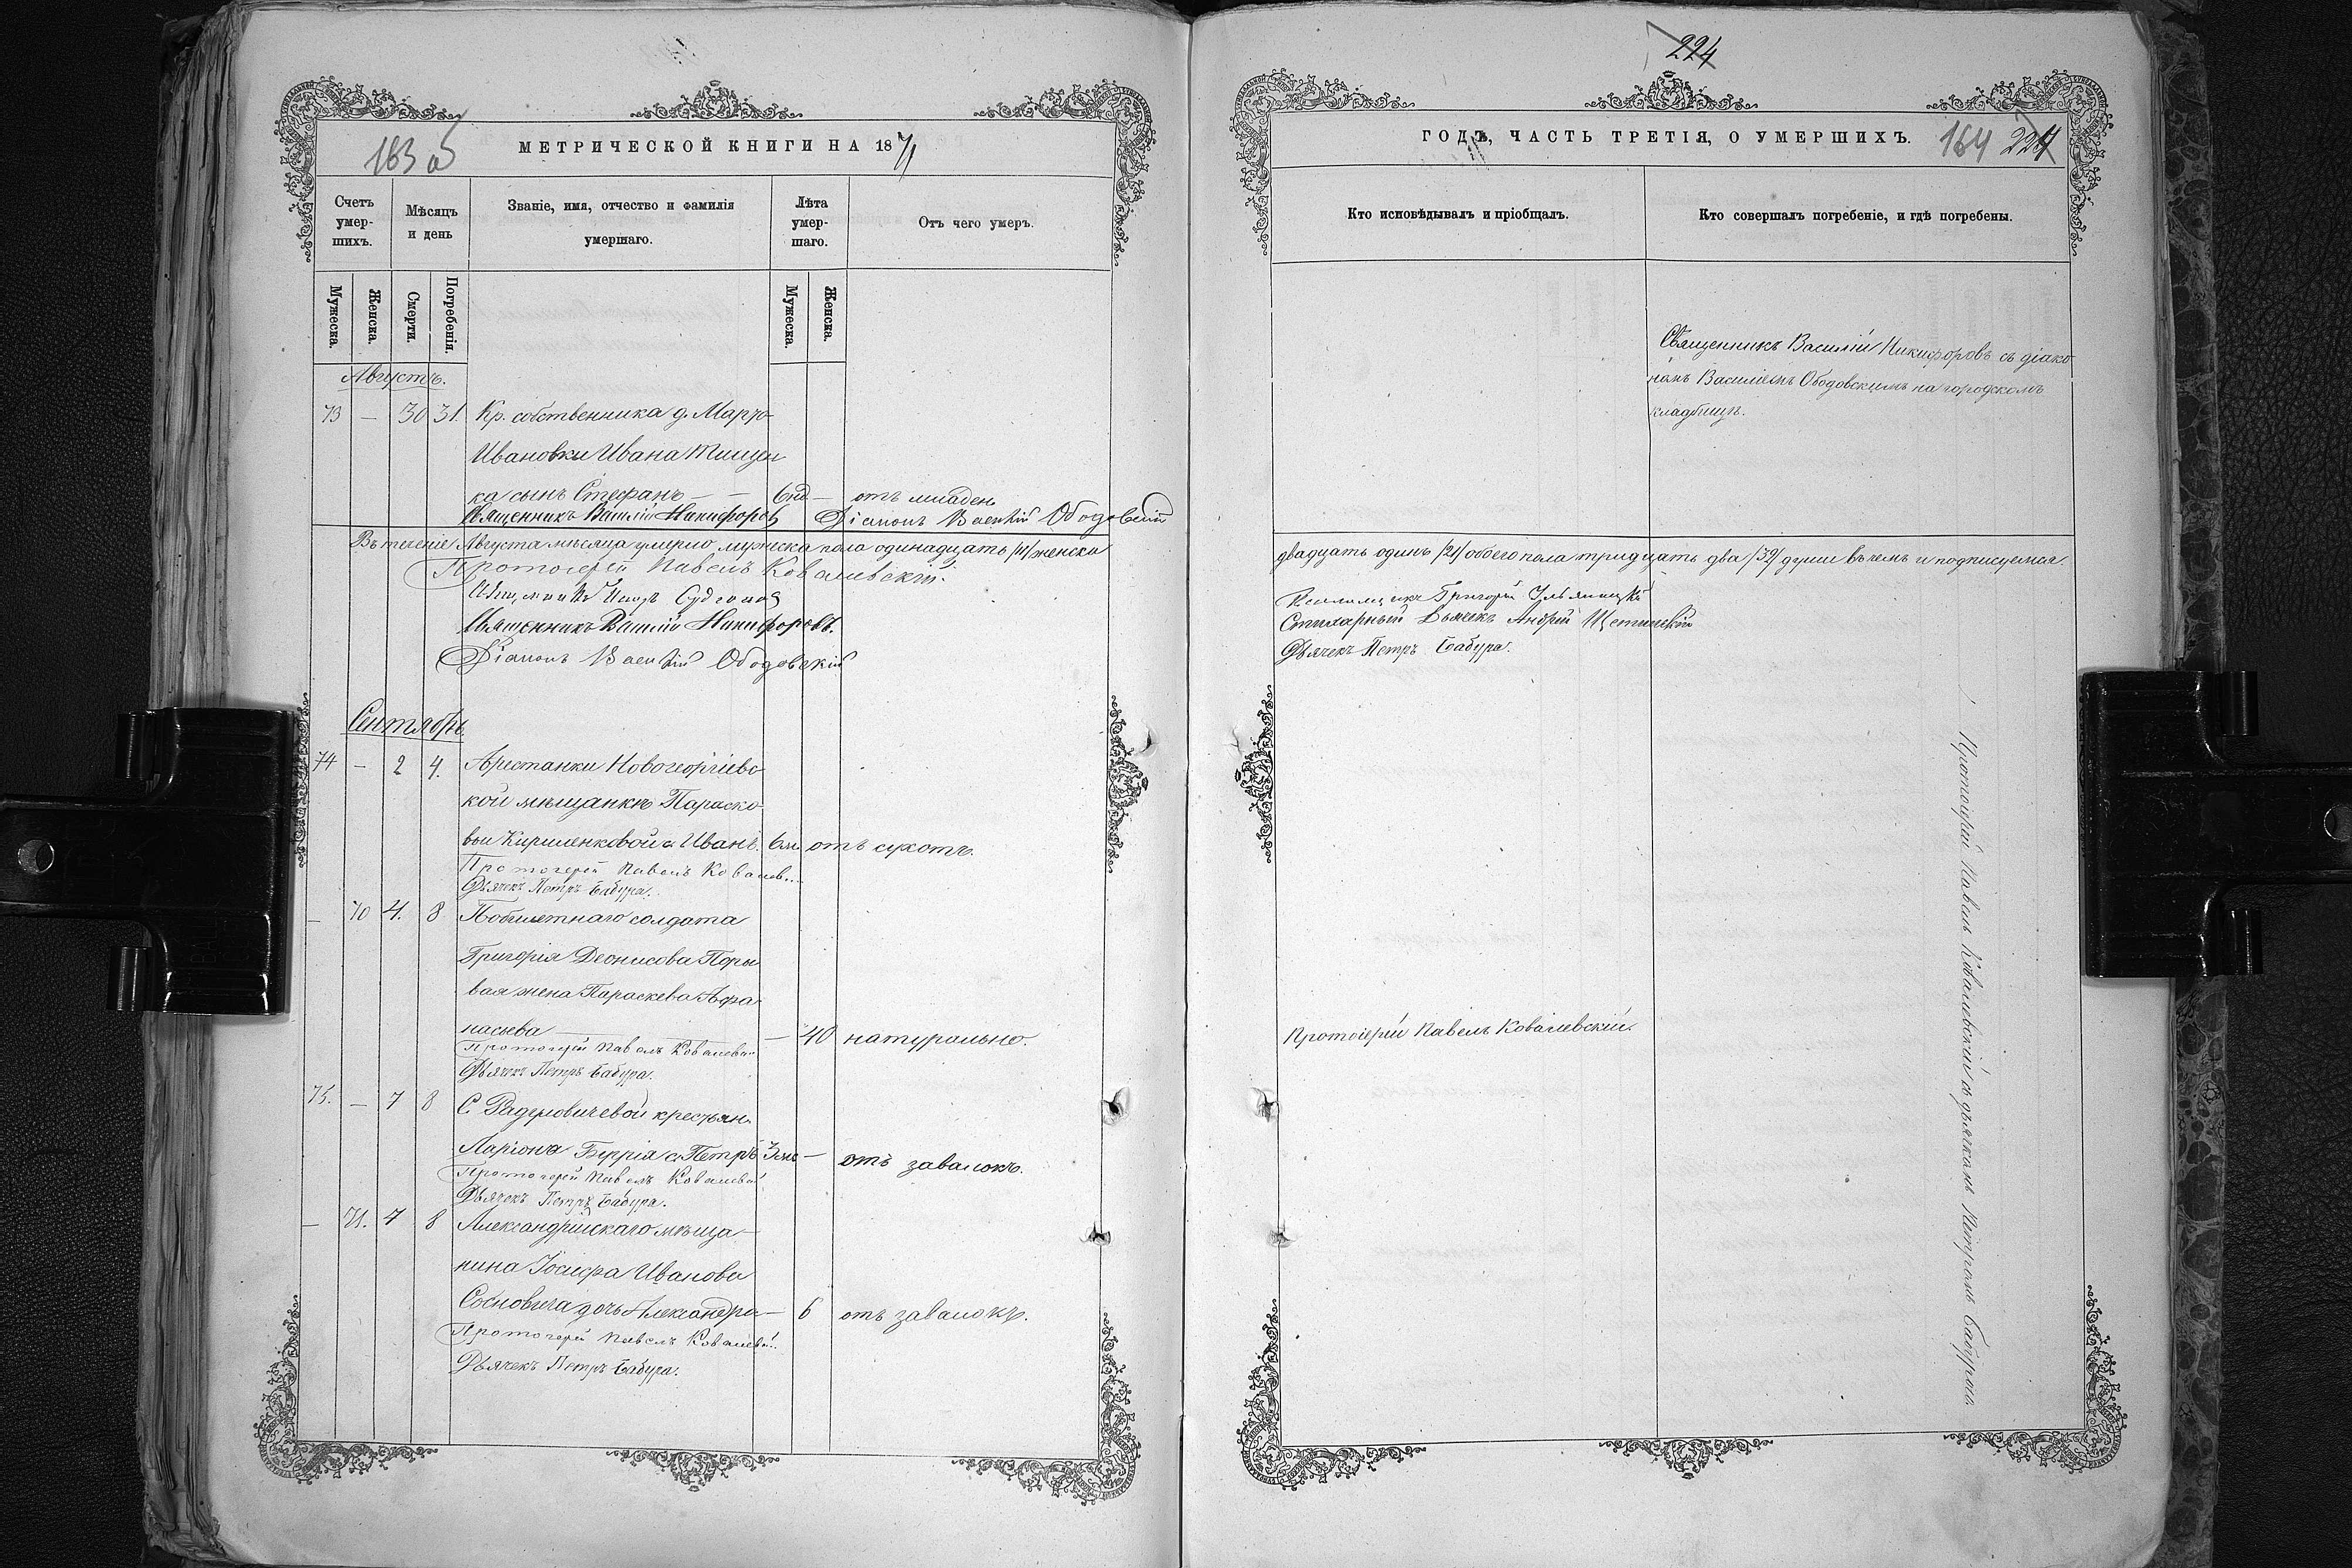 163 об
МЕТРИЧЕСКОЙ КНИГИ НА 1871
Счетъ умер- шихъ.
Мѣсяцъ и день
Званіе, имя, отчество и фамилія умершаго.
Лѣта умер- шаго.
Отъ чего умеръ.
Мужеска.
Женска.
Смерти.
Погребенія.
Мужеска.
Женска.
Августъ.
73 — 30 31. Кр. собственника д. Марто-
Ивановки Ивана Тищен
ка сынъ Стефанъ — — 6 нд — отъ младен
Священникъ Василій Никифоровъ Діаконъ Василій Ободовскій
Въ теченіе Августа мѣсяца умерло мужеска пола одинадцать /11/ женска
Протоіерей Павелъ Ковалевскій.
Священникъ
Священникъ Василій Никифоровъ.
Діаконъ Василій Ободовскій
Сентябрь.
74 — 2 4. Арестанки Новогеоргіевс
кой мѣщанки Параско
вьи Кириленковой с. Иванъ. 6 м. отъ сухотъ.
Протоіерей Павелъ Ковалев...
Дьячекъ Петръ Бабура.
— 70 4. 8 Побилетнаго солдата
Григорія Деонисова
вая жена Параскева Афа
насьева — — 40 натурально.
Протоіерей Павелъ Ковалевс..
Дьячекъ Петръ Бабура.
75. — 7 8 С. крестьян.
Ларіона с. Петръ — отъ завалокъ.
Протоіерей Павелъ Ковалевск
Дьячекъ Петръ Бабура.
— 71. 7 8 Александрійскаго мѣща-
нина Іосифа Иванова
Сосновича дочь Александра — 6 отъ завалокъ.
Протоіерей Павелъ Ковалевск..
Дьячекъ Петръ Бабура.
224
ГОДЪ, ЧАСТЬ ТРЕТІЯ, О УМЕРШИХЪ.
164 224
Кто исповѣдывалъ и пріобщалъ.
Кто совершалъ погребеніе, и гдѣ погребены.
Священникъ Василій Никифоровъ съ діако
номъ Василіемъ Ободовскимъ на городскомъ
кладбищѣ.
двадцать одинъ /21/ обоего пола тридцать два /32/ души въ чемъ и подписуемся.
Псаломщикъ Григорій
Стихарный Дьячекъ Андрей Щетинскій
Дьячекъ Петръ Бабура.
Протоіерей Павелъ Ковалевскій.
Протоіерей Павелъ Ковалевскій съ дьячкомъ Петромъ Бабурою